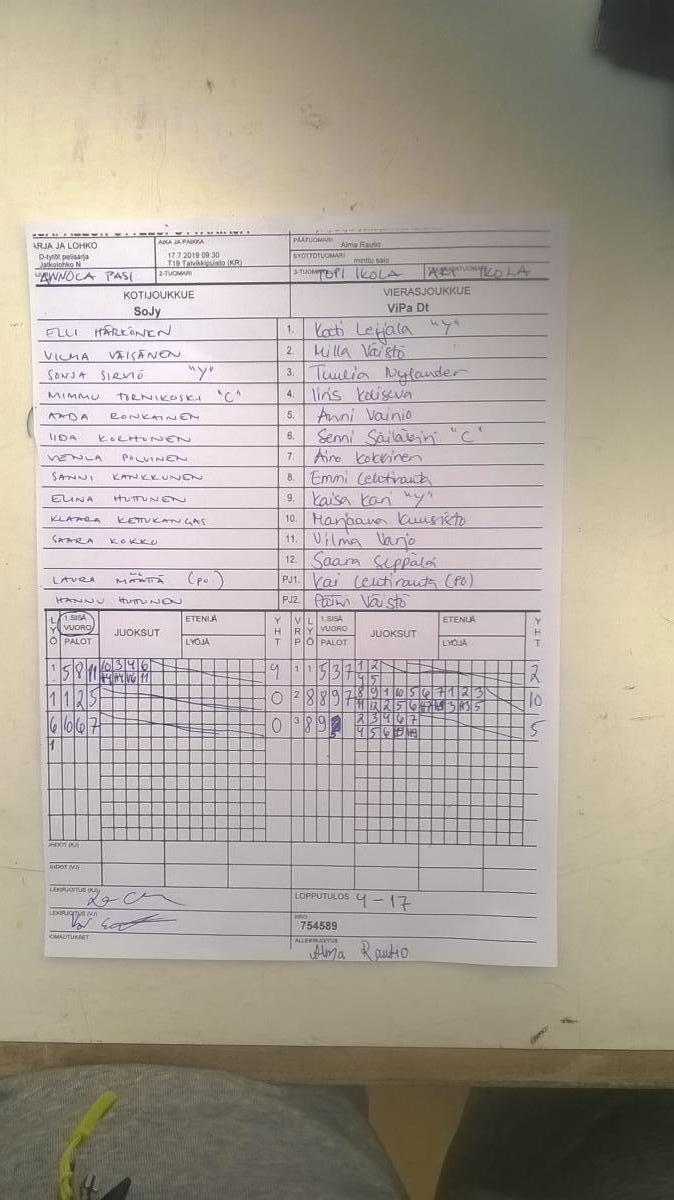 ARJA JA LOHKO
D-tytöt pelisarja
Jatkolohko N
AIKA JA PAIKKA
17.7.2019 09:30
T19 Talvikkipuisto (KR)
PÄÄTUOMARI Alma Rautio
SYÖTTÖTUOMARI minttu salo
ANNOLA PASI
2-TUOMARI
3-TUOMARI TOPI IKOLA
IKOLA
KOTIJOUKKUE
SoJy
VIERASJOUKKUE
ViPa Dt
ELLI HÄRKÖNEN 1. Kati Leijala "Y"
VILMA VÄISÄNEN 2. Milla Väistö
SONJA SIRVIÖ "Y" 3. Tuulia Nylander
MIMMU TIRNIKOSKI "C" 4. Iiris Koliseva
AADA RONKAINEN 5. Anni Vainio
IIDA KORHONEN 6. Senni "C"
VENLA POLVINEN 7. Aino Kokkinen
SANNI KANKKUNEN 8. Emmi Lehtiranta
ELINA HUTTUNEN 9. Kaisa Kari "Y"
KLAARA KETTUKANGAS 10. Marjaana Kuusisto
SAARA KOKKO 11. Vilma Varjo
12. Saara Seppälä
LAURA MÄÄTTÄ (PO) PJ1. Kai Lehtiranta (PO)
HANNU HUTTUNEN PJ2. Päivi Väistö
LYÖ 1.SISÄ VUORO PALOT JUOKSUT ETENIJÄ LYÖJÄ YHT VRP LYÖ 1.SISÄ VUORO PALOT JUOKSUT ETENIJÄ LYÖJÄ YHT
1 5 8 11 10 3 4 6 4 1 1 5 3 7 1 2 2
4 5
1 1 2 5 0 2 8 8 9 7 8 9 1 10 5 6 7 1 2 3 10
6 6 6 7 0 3 8 9 2 3 4 6 7 5
1
LEKIRJOITUS (KJ)
LEKIRJOITUS (VJ)
LOPPUTULOS 4-17
NRO
754589
HUOMAUTUKSET
ALLEKIRJOITUS
Alma Rautio